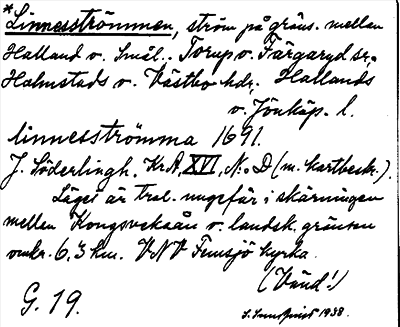 *Linnesströmmen, ström på gräns. mellan
Halland o. Smål.. Torup o. Färgaryd sr,
Halmstads o. Västbo hdr. Hallands
o. Jönköp. l.
linnesströmma 1691.
J. Söderlingh. KrA, XVI, N:o D (m. kartbeskr.).
Läget är trol. ungefär i skärningen
mellan Kongsveksån o. landsk. gränsen
omkr. 6,3 km. VNV Femsjö kyrka.
(Vänd!)
G. 19.
1938.